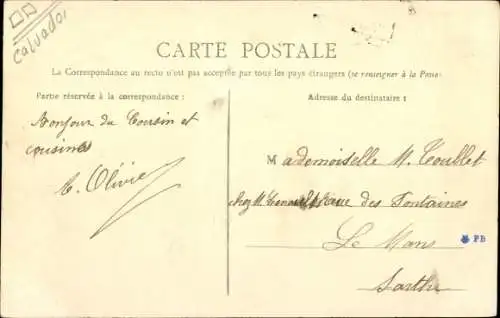 Calvados
CARTE POSTALE
La Correspondance au recto n'est pas acceptée par tous les pays étrangers (se renseigner à la Poste)
Partie réservée à la correspondance :
Adresse du destinataire :
Bonjour du Cousin et
cousines
Olivie
Mademoiselle M. Toublet
chez M. rue des Fontaines
Le Mans
Sarthe
PB